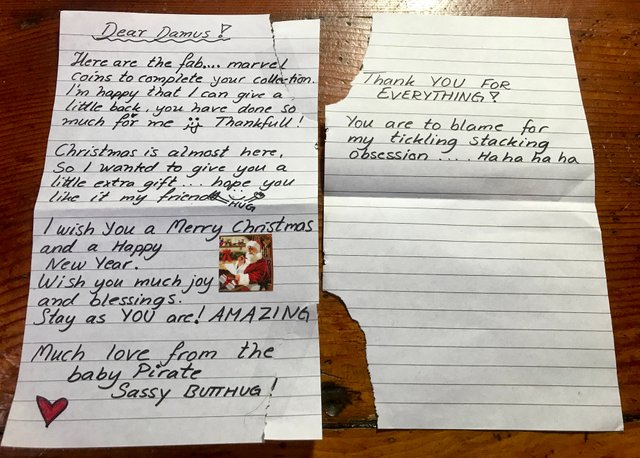 Dear Damus!
Here are the fab.... marvel
coins to complete your collection.
I'm happy that I can give a
little back, you have done so
much for me Thankfull!
Christmas is almost here,
So I wanted to give you a
little extra gift... hope you
like it my friend
HUG
I wish You a Merry Christmas
and a Happy
New Year.
Wish you much joy
and blessings.
Stay as YOU are! AMAZING
Much love from the
baby Pirate
Sassy BUTTHUG!
Thank YOU FOR
EVERYTHING!
You are to blame for
my tickling stacking
obsession .... Ha ha ha ha